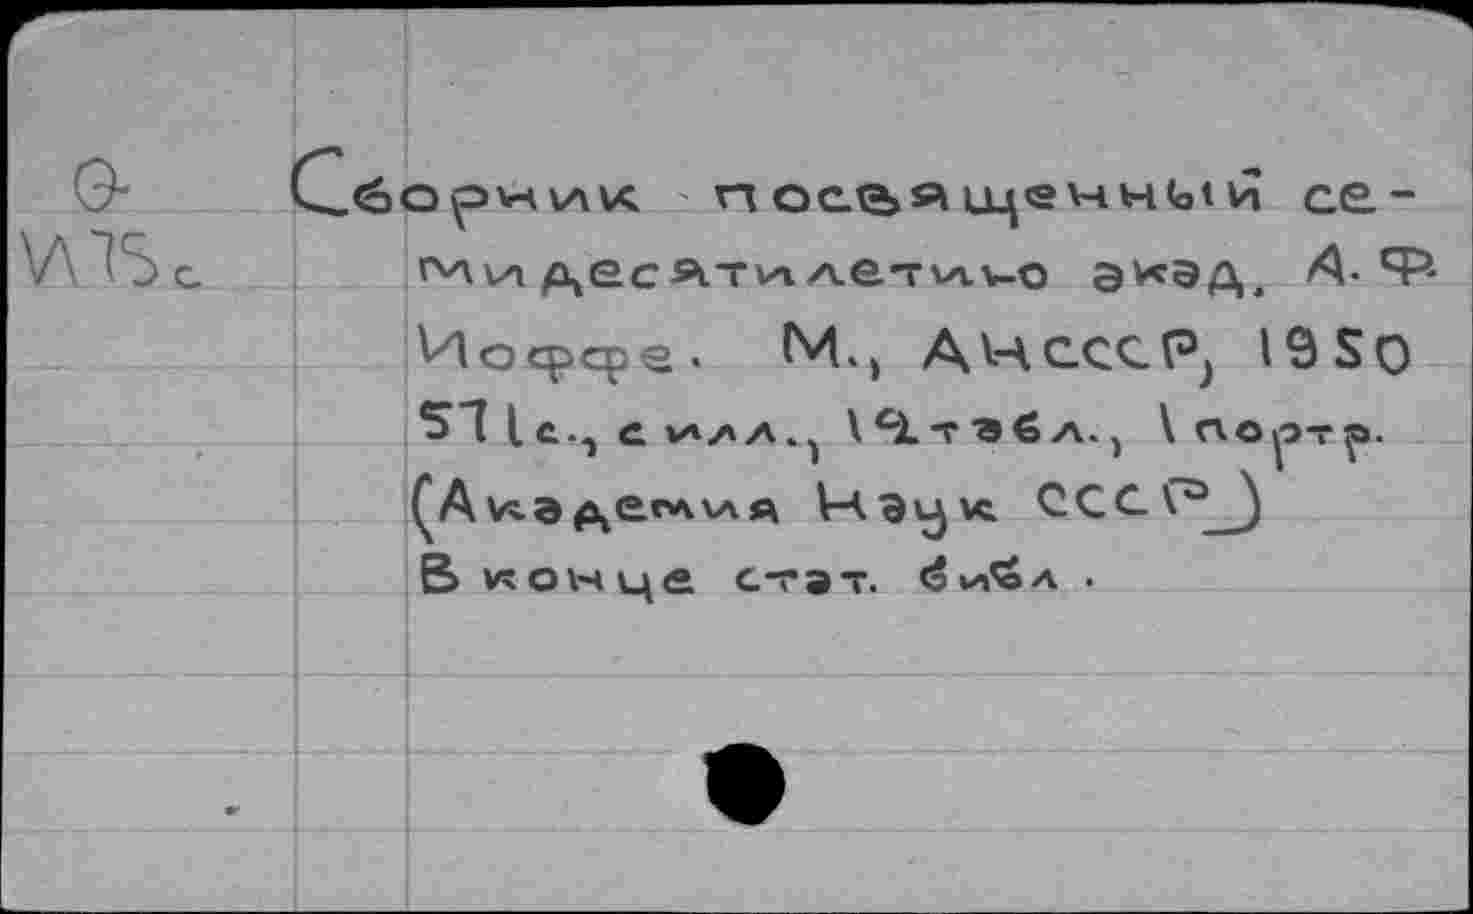 Ѳ Сборник посвященный се-
И75с мидесятилетию акад. А.Ф.
Иоффе. М., АНСССР, 1950
571с., с илл., 19 табл., 1 портр.
(Академия Наук СССР)
В конце стат. библ.